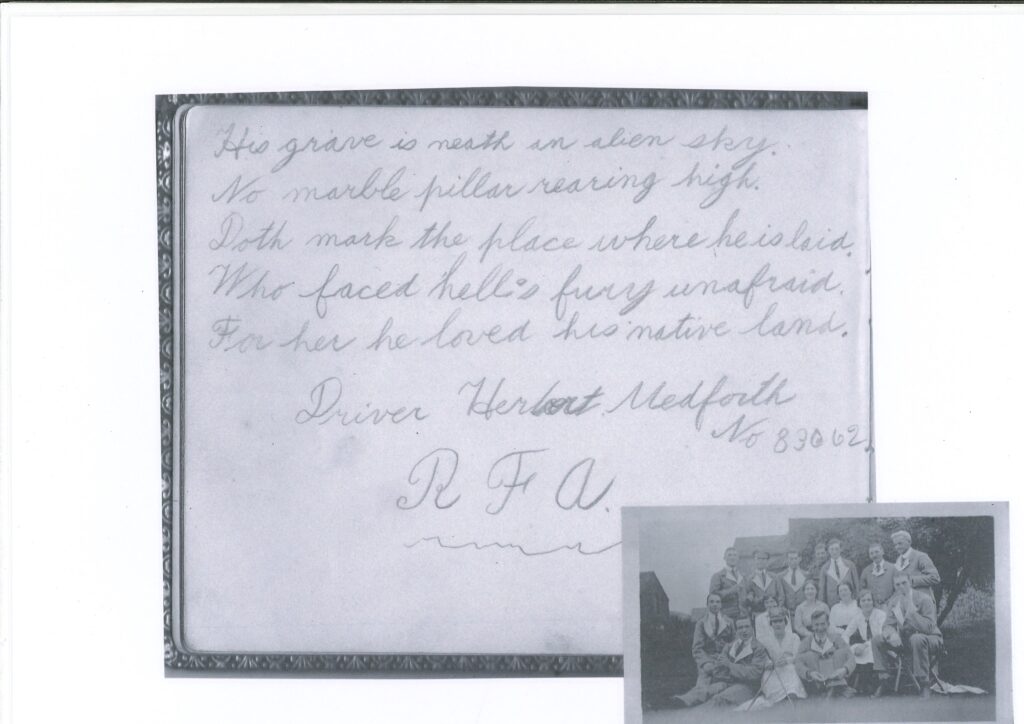 His grave is neath an alien sky.
No marble pillar rearing high.
Doth mark the place where he is laid.
Who faced hell's fury unafraid.
For her he loved his native land.
Driver Herbert Medforth
No 83062.
R F A.